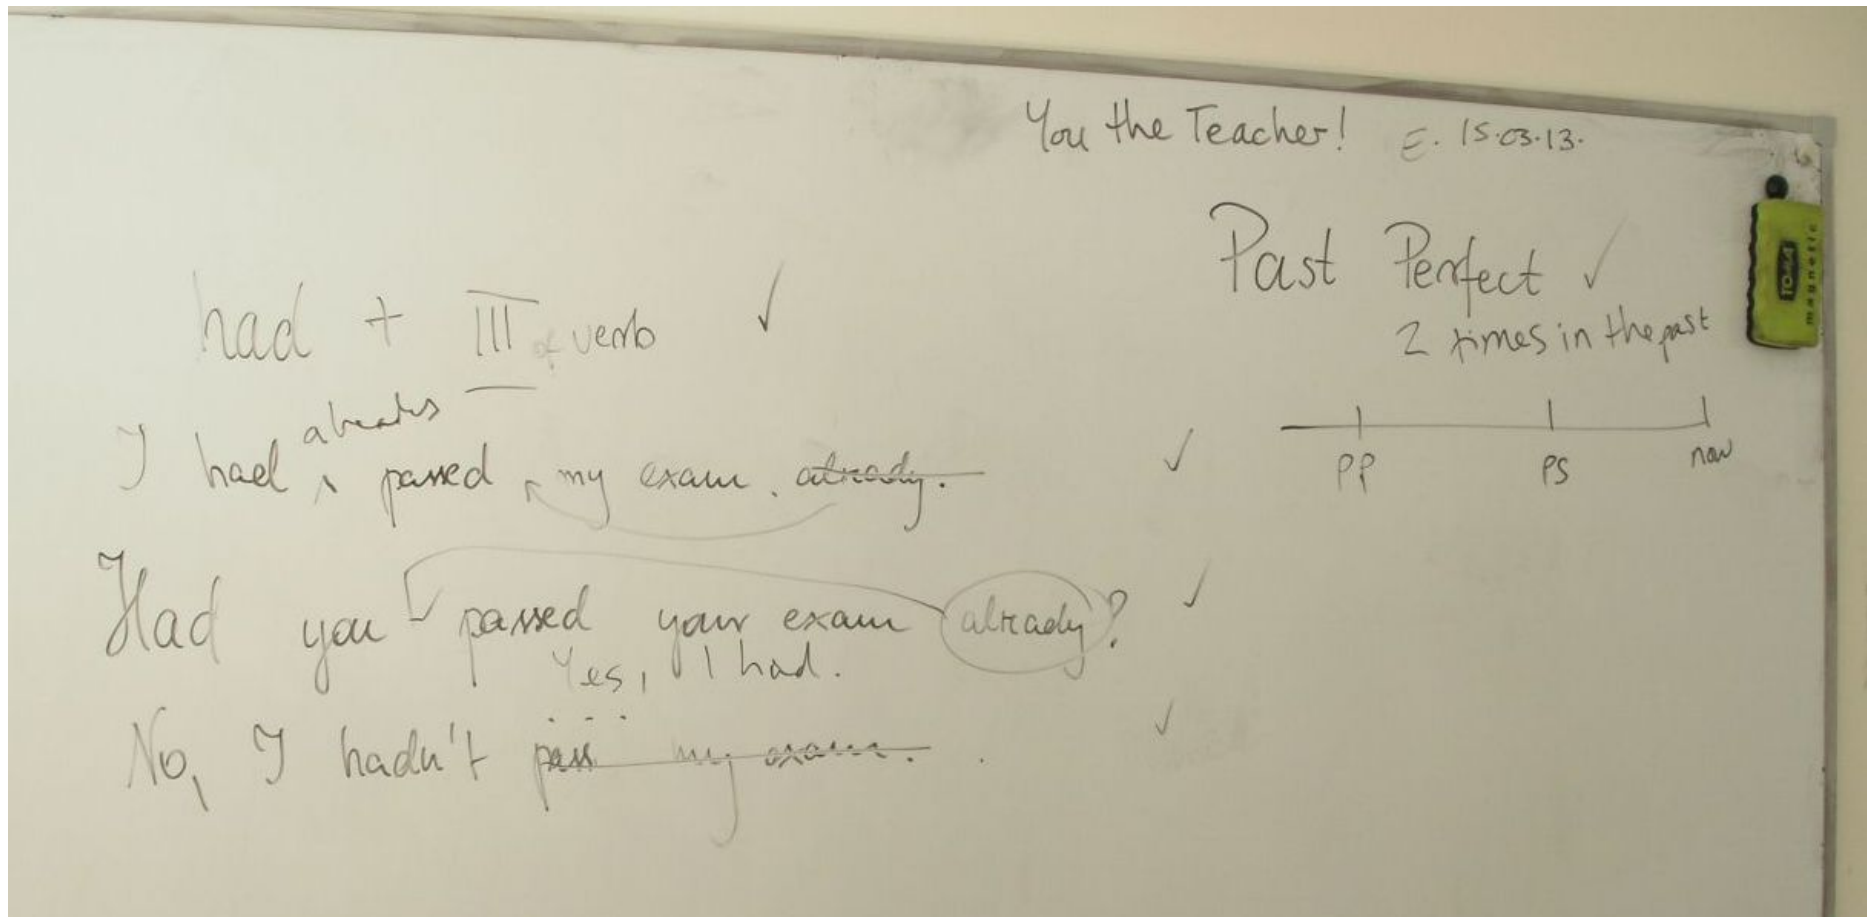 You the Teacher! E. 15.03.13.
Past Perfect ✓
2 times in the past
PP PS now
had + III of verb ✓
already
I had passed my exam. already. ✓
Had you passed your exam already? ✓
Yes, I had.
No, I hadn't pass my exam. ✓
TOMA
magnetic